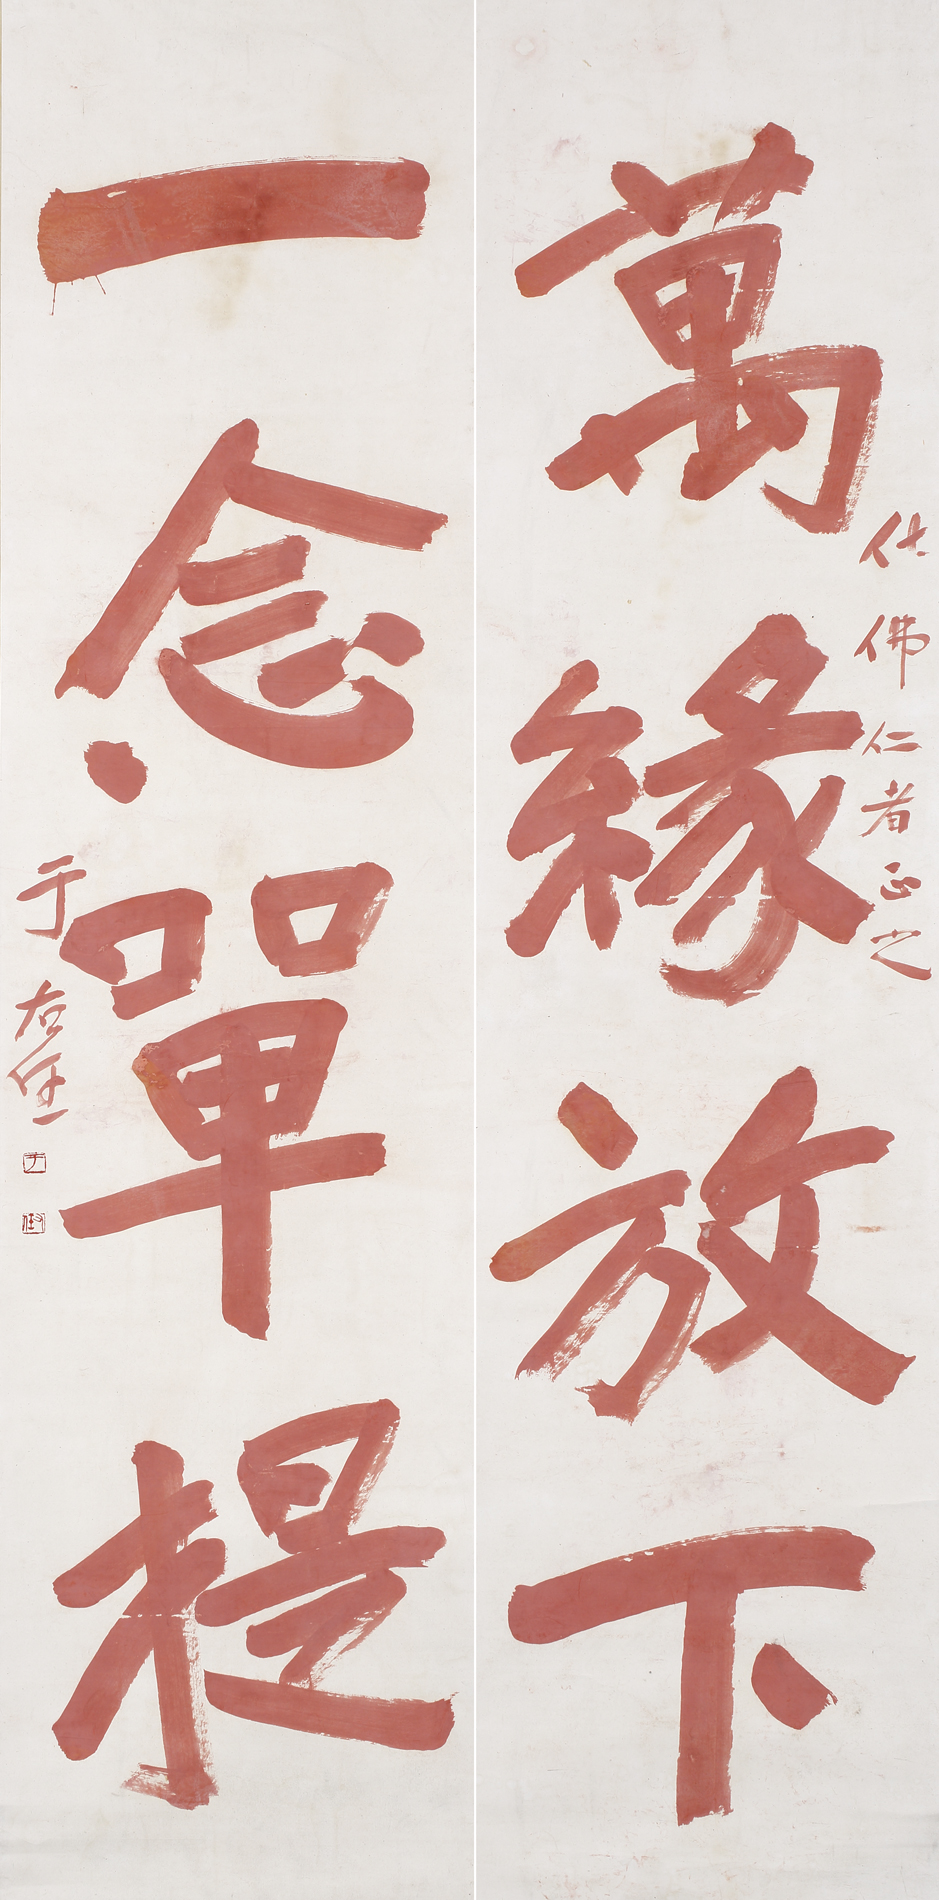 萬緣放下
仕佛仁者正之
一念單提
于右任